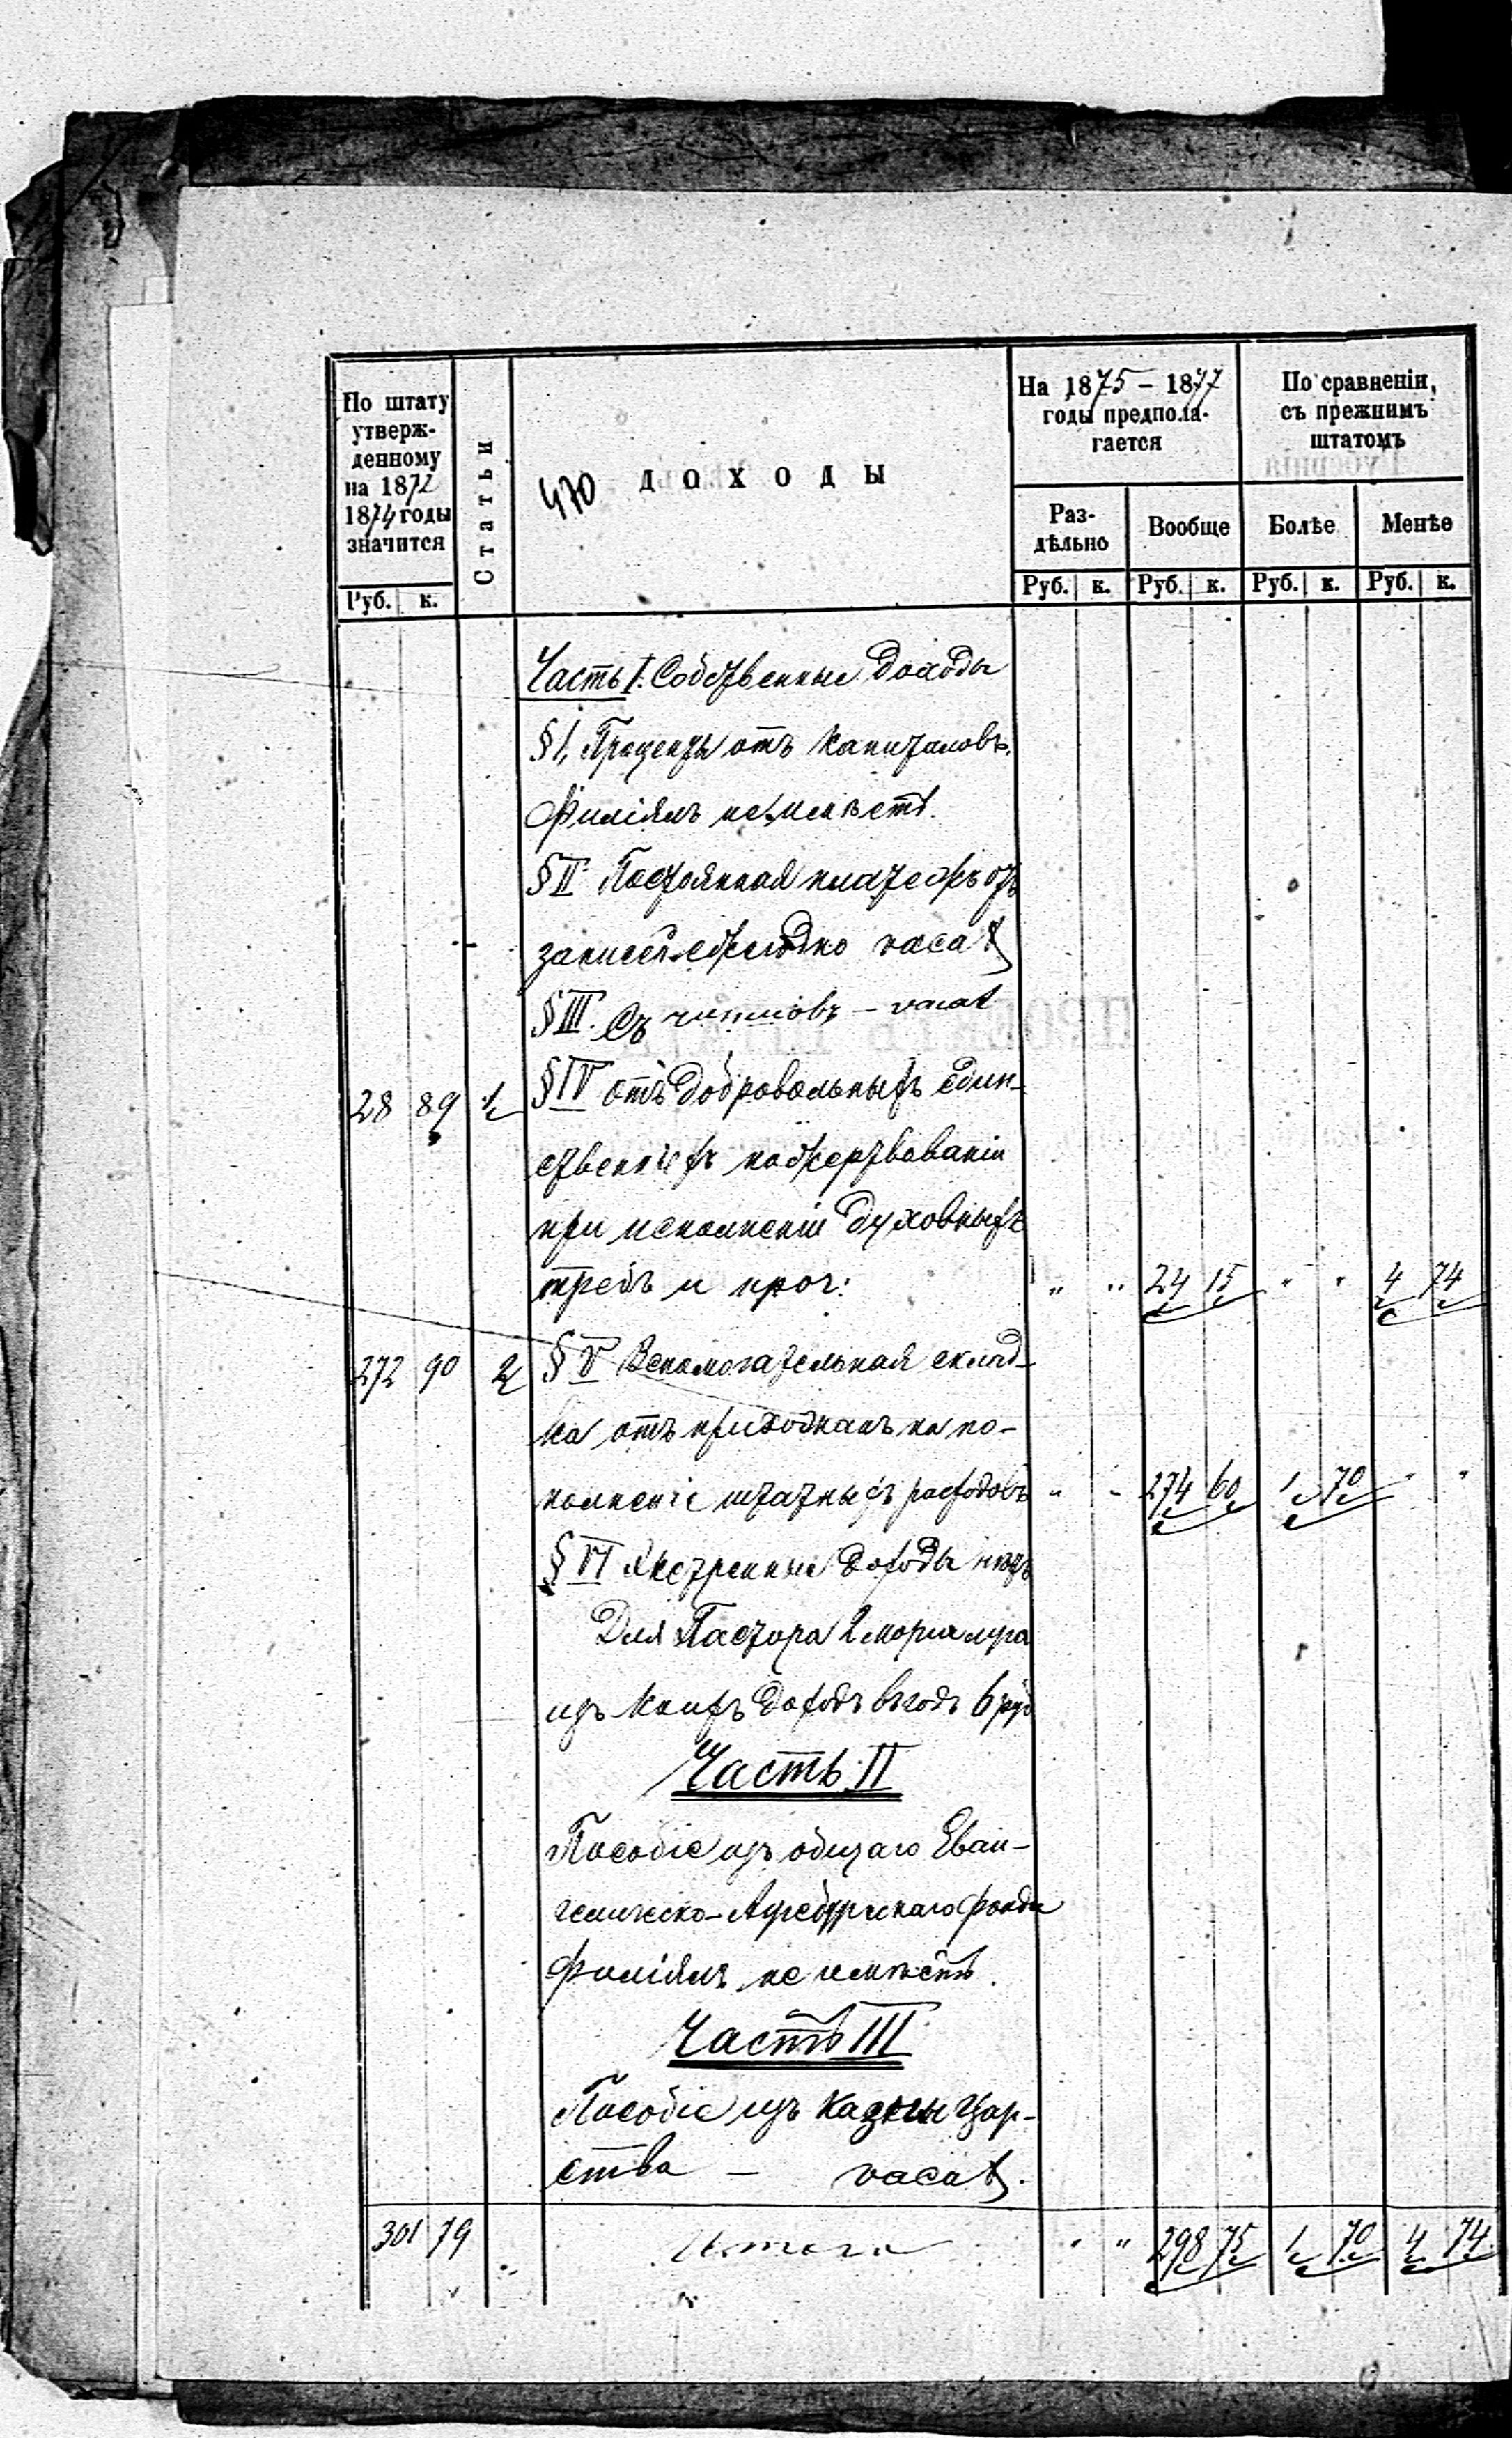 По штату
утверж-
денному
на 1872
1874 годы
значится
Руб. к.
Статьи
470 ДОХОДЫ
На 1875 – 1877
годы предпола-
гается
По сравненiи,
съ прежнимъ
штатомъ
Раз-
дѣльно
Вообще
Болѣе
Менѣе
Руб. к. Руб. к. Руб. к. Руб. к.
Часть I. Собственные доходы
§ I, Проценты отъ капиталовъ.
Филіялъ неимѣетъ.
§ II Постоянная платежъ отъ
записей ежегодно vacat
§ III. Съ чиншовъ – vacat
28 89 1 § IV отъ добровольныхъ един-
ственныхъ пожертвованіи
при исполненіи духовныхъ
требъ и проч: " " 24 15 " " 4 74
272 90 2 § V Вспомогательная склад-
ка отъ прихожанъ на по-
полненіе штатныхъ расходовъ " " 274 60 1 70 " "
§ VI Экстренные доходы нѣтъ
Для Пастора 2 морга луга
изъ коихъ доходъ въ годъ 6 руб
Часть II
Пособіе изъ общаго Еван-
гелическо-Аугсбургскаго фонда
Филіялъ не имѣетъ.
Часть III
Пособіе изъ казны Цар-
ства – vacat.
301 79 Итого " " 298 75 1 70 4 74